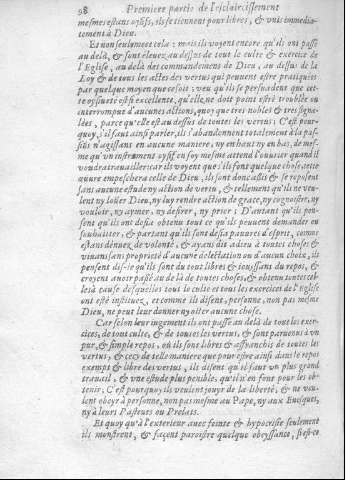 98 Premiere partie de l'esclaircissement
mesmes estans oysifs, ils se tiennent pour libres, & vnis immedia-
tement à Dieu.
Et non seulement cela : mais ils croyent encore qu'ils ont passé
au delà, & sont eleuez au dessus de tout le culte & exercice de
l'Eglise, au delà des commandemens de Dieu, au dessus de la
Loy & de tous les actes des vertus qui peuuent estre pratiquées
par quelque moyen que ce soit ; veu qu'ils se persuadent que cet-
te oysiueté est si excellente, qu'elle ne doit point estre troublée ou
interrompuë d'aucunes actions, pour tres nobles & tres signa-
lées, parce qu'elle est au dessus de toutes les vertus. C'est pour-
quoy, s'il faut ainsi parler, ils s'abandonnent totalement à la pas-
siuë n'agissans en aucune maniere, ny en haut ny en bas, de mes-
me qu'vn instrument oysif en soy mesme attend l'ouurier quand il
voudra trauailler : car ils croyent que s'ils font quelque chose, cette
œuure empeschera celle de Dieu ; ils sont donc oisifs & se reposent
sans aucune estude ny action de vertu, & tellement qu'ils ne veu-
lent ny loüer Dieu, ny luy rendre action de grace, ny cognoistre, ny
vouloir, ny aymer, ny desirer, ny prier : D'autant qu'ils pen-
sent qu'ils ont desia obtenu tout ce qu'ils peuuent demander ou
souhaitter, & partant qu'ils sont desia pauures d'esprit, comme
estans dénuez de volonté, & ayans dit adieu à toutes choses &
viuans sans proprieté d'aucune delectation ou d'aucun choix, ils
pensent dis-ie qu'ils sont du tout libres & iouyssans du repos, &
croyent auoir passé au delà de toutes choses, & obtenu toutes cel-
les à cause desquelles tout le culte et tous les exercices de l'Eglise
ont esté instituez, et comme ils disent, personne, non pas mesme
Dieu, ne peut leur donner ny oster aucune chose.
Car selon leur iugement ils ont passé au delà de tous les exer-
cices, de tout culte, & de toutes les vertus, & sont paruenus à vn
pur, & simple repos, où ils sont libres & affranchis de toutes les
vertus, & cecy de telle maniere que pour estre ainsi dans le repos
exempt & libre des vertus, ils disent qu'il faut vn plus grand
trauail, & vne estude plus penible, qu'il n'en faut pour les ob-
tenir. C'est pourquoy ils veulent iouyr de la liberté, & ne veu-
lent obeyr à personne, non pas mesme au Pape, ny aux Euesques,
ny à leurs Pasteurs ou Prelats.
Et quoy qu'à l'exterieur auec feinte & hypocrisie seulement
ils monstrent, & façent paroistre quelque obeyssance, si est-ce